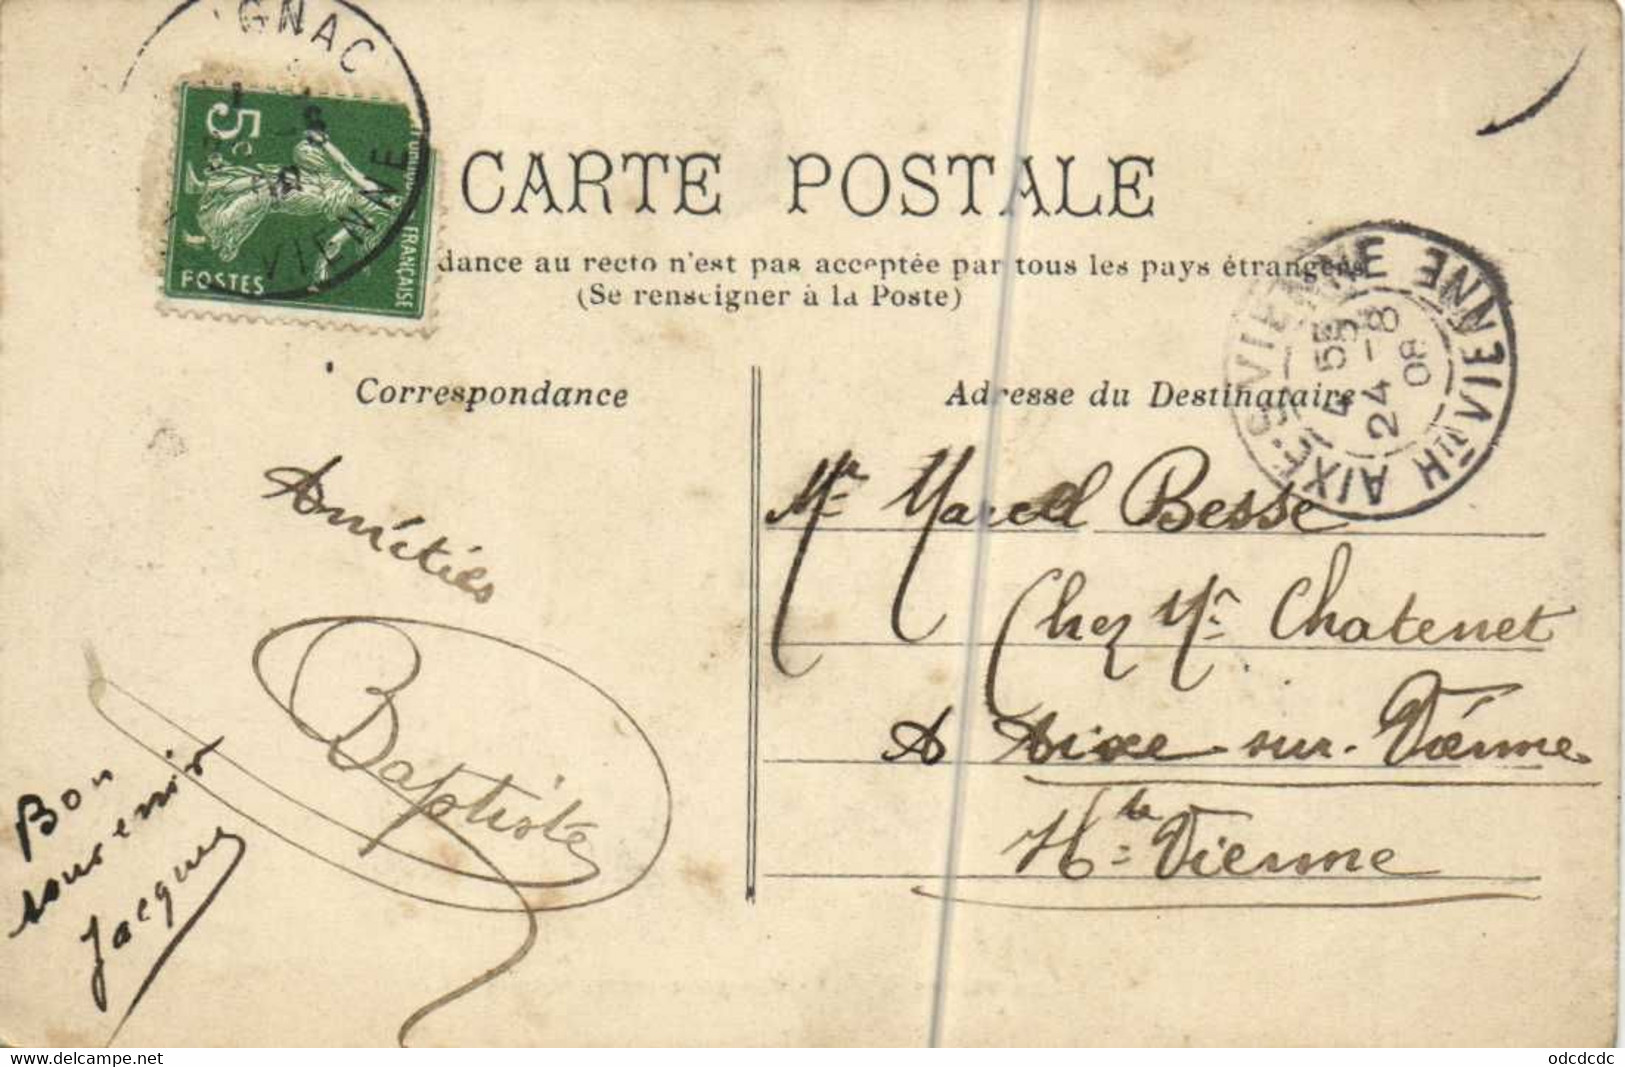 GNAC
VIENNE
5c
POSTES
FRANÇAISE
CARTE POSTALE
dance au recto n'est pas acceptée par tous les pays étrangers
(Se renseigner à la Poste)
AIXE-S-VIENNE
HTE VIENNE
4 55
24 -8
08
Correspondance
Adresse du Destinataire
Amitiés
Baptiste
Bon
souvenir
Jacques
Mr Marcel Besse
Chez Mr Chatenet
A Aixe-sur-Vienne
Hte Vienne
www.delcampe.net
odcdcdc